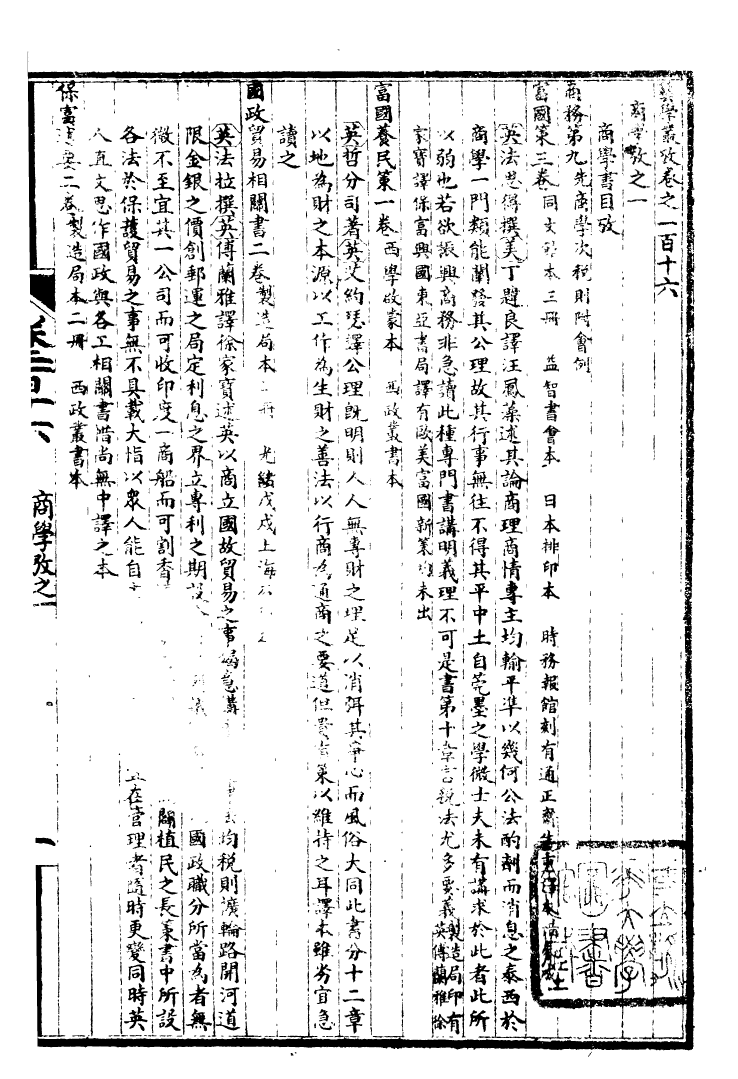 學叢攷卷之一百十六
商學攷之一
商學書目攷
商務第九先商學次稅則附會例
富國策三卷同文館本三冊 益智書會本 日本排印本 時務報館刻有通正齋生
英法思得撰美丁韙良譯汪鳳藻述其論商理商情專主均輸平準以幾何公法酌劑而消息之泰西於
商學一門類能闡發其公理故其行事無往不得其平中土自莞墨之學微士夫未有講求於此者此所
以弱也若欲振興商務非急讀此種專門書講明義理不可是書第十章言稅法尤多要義製造局印有英傅蘭雅徐
家寶譯保富興國東亞書局譯有歐美富國新策未出
富國養民策一卷西學啟蒙本 西政叢書本
英哲分司著英艾約瑟譯公理既明則人人無專財之理足以消弭其爭心而風俗大同此書分十二章
以地為財之本源以工作為生財之善法以行商為通商之要道但貴富策以維持之耳譯本雖劣宜急
讀之
國政貿易相關書二卷製造局本 冊 光緒戊戌上海
英法拉撰英傅蘭雅譯徐家寶述英以商立國故貿易之事 均稅則濱輪路開河道
限金銀之價創郵運之局定利息之界立專利之期設 國政職分所當為者無
微不至宜其一公司而可收印度一商船而可割香 關植民之長策書中所設
各法於保護貿易之事無不具載大恉以眾人能自 在管理者隨時更變同時英
人直文思作國政與各工相關書惜尚無中譯之本
保富述要二卷製造局本二冊 西政叢書本
商學攷之一
一